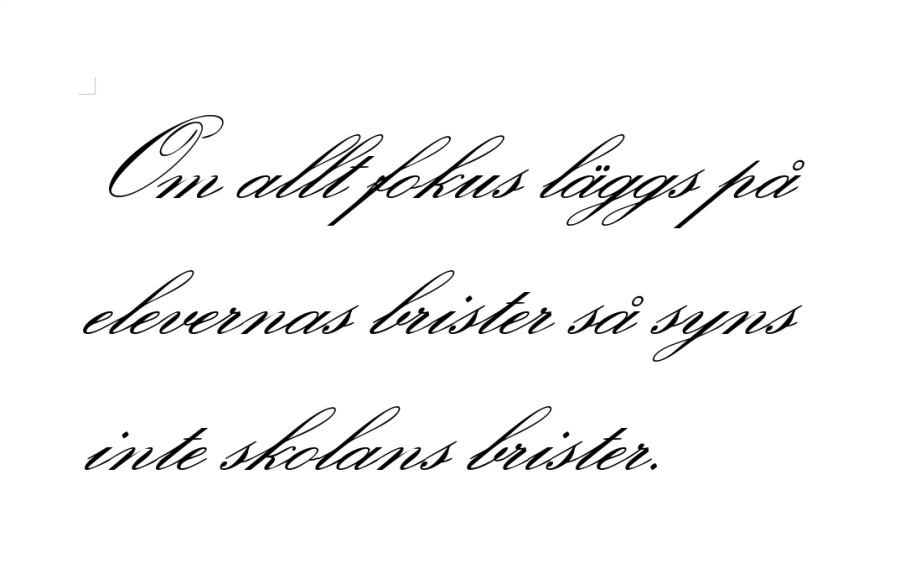 Om allt fokus läggs på
elevernas brister så syns
inte skolans brister.